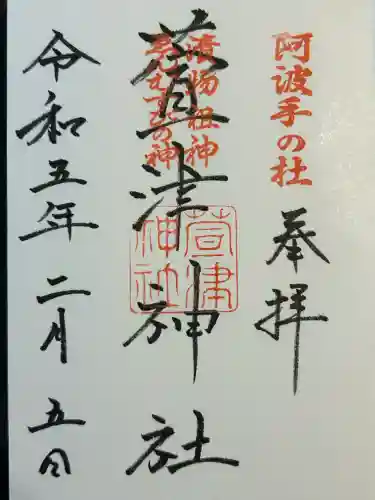 阿波手の杜
奉拝
漬物祖神
縁むすびの神
萱津神社
萱津
神社
令和五年二月五日